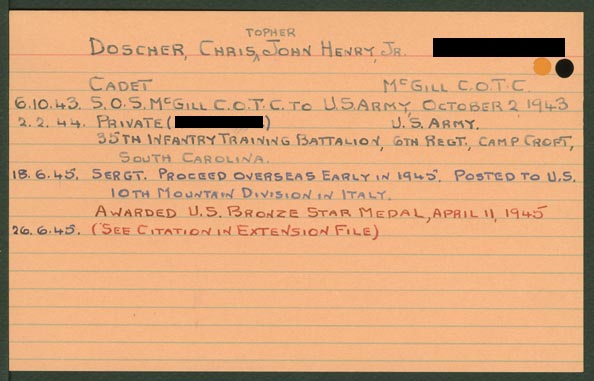 TOPHER
DOSCHER, CHRIS, JOHN HENRY, JR.
CADET MCGILL C.O.T.C.
6.10.43. S.O.S. MCGILL C.O.T.C. TO U.S. ARMY, OCTOBER 2, 1943
2.2.44. PRIVATE ( ) U.S. ARMY.
35TH INFANTRY TRAINING BATTALION, 6TH REGT., CAMP CROFT,
SOUTH CAROLINA.
18.6.45. SERGT. PROCEED OVERSEAS EARLY IN 1945. POSTED TO U.S.
10TH MOUNTAIN DIVISION IN ITALY.
AWARDED U.S. BRONZE STAR MEDAL, APRIL 11, 1945
26.6.45. (SEE CITATION IN EXTENSION FILE)